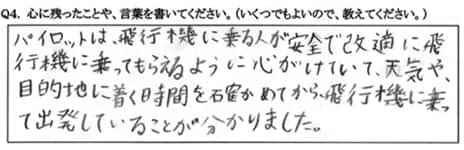 Q4. 心に残ったことや、言葉を書いてください。（いくつでもよいので、教えてください。）
パイロットは、飛行機に乗る人が安全で改適に飛
行機に乗ってもらえるように心がけていて、天気や、
目的地に着く時間を石確かめてから飛行機に乗っ
て出発していることが分かりました。